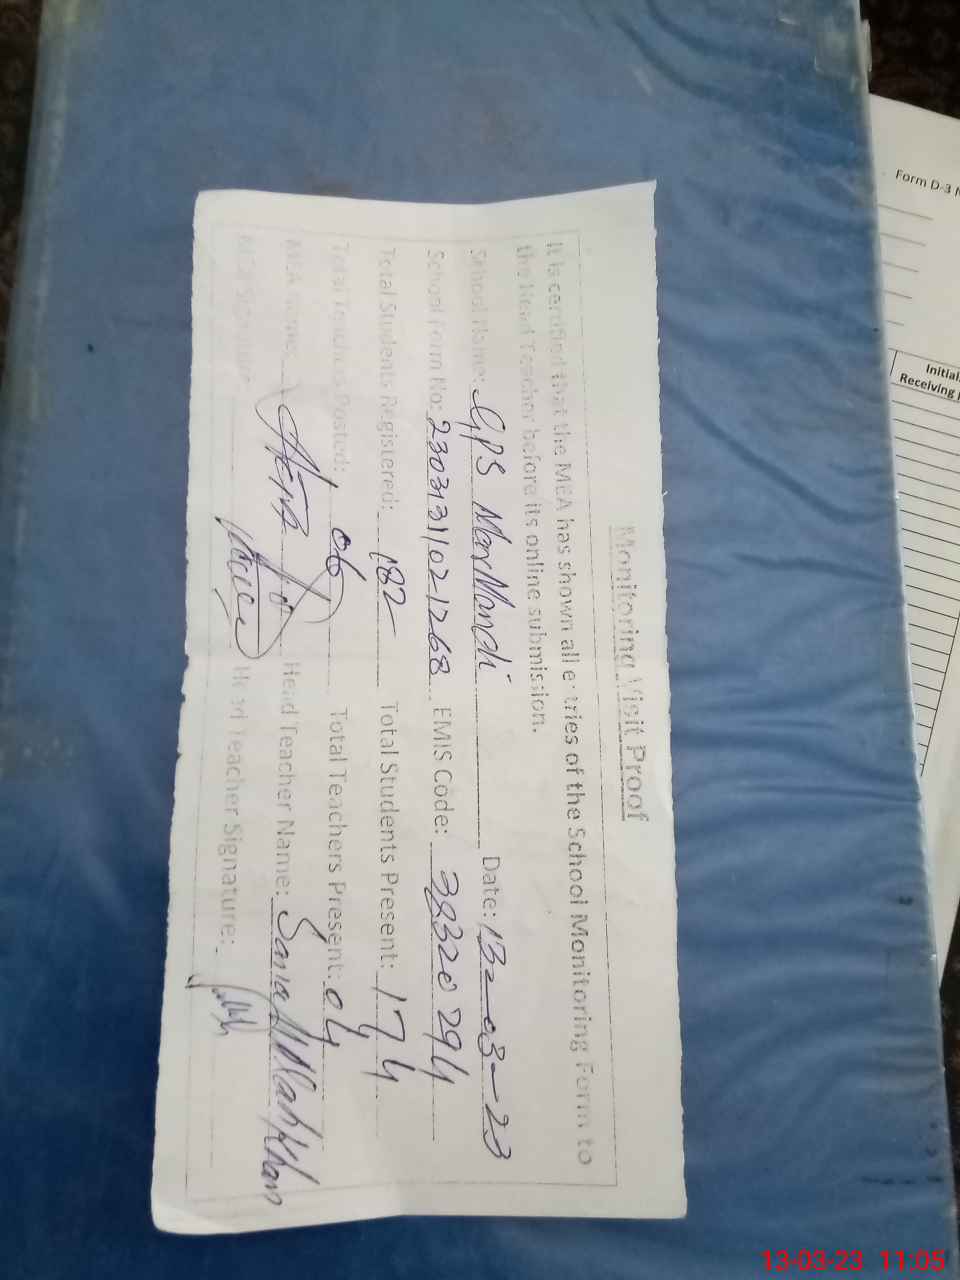 Monitoring Visit Proof
It is certified that the MEA has shown all entries of the School Monitoring Form to
the Head Teacher before its online submission.
School Name: GPS Date: 13-03-23
School Form No: 23031311021268 EMIS Code: 38320294
Total Students Registered: 182 Total Students Present: 174
Total Teachers Posted: 06 Total Teachers Present: 04
MEA Name: Head Teacher Name: Sana Ullah Khan
MEA Signature: Head Teacher Signature:
Form D-3
Initial
Receiving
13-03-23 11:05